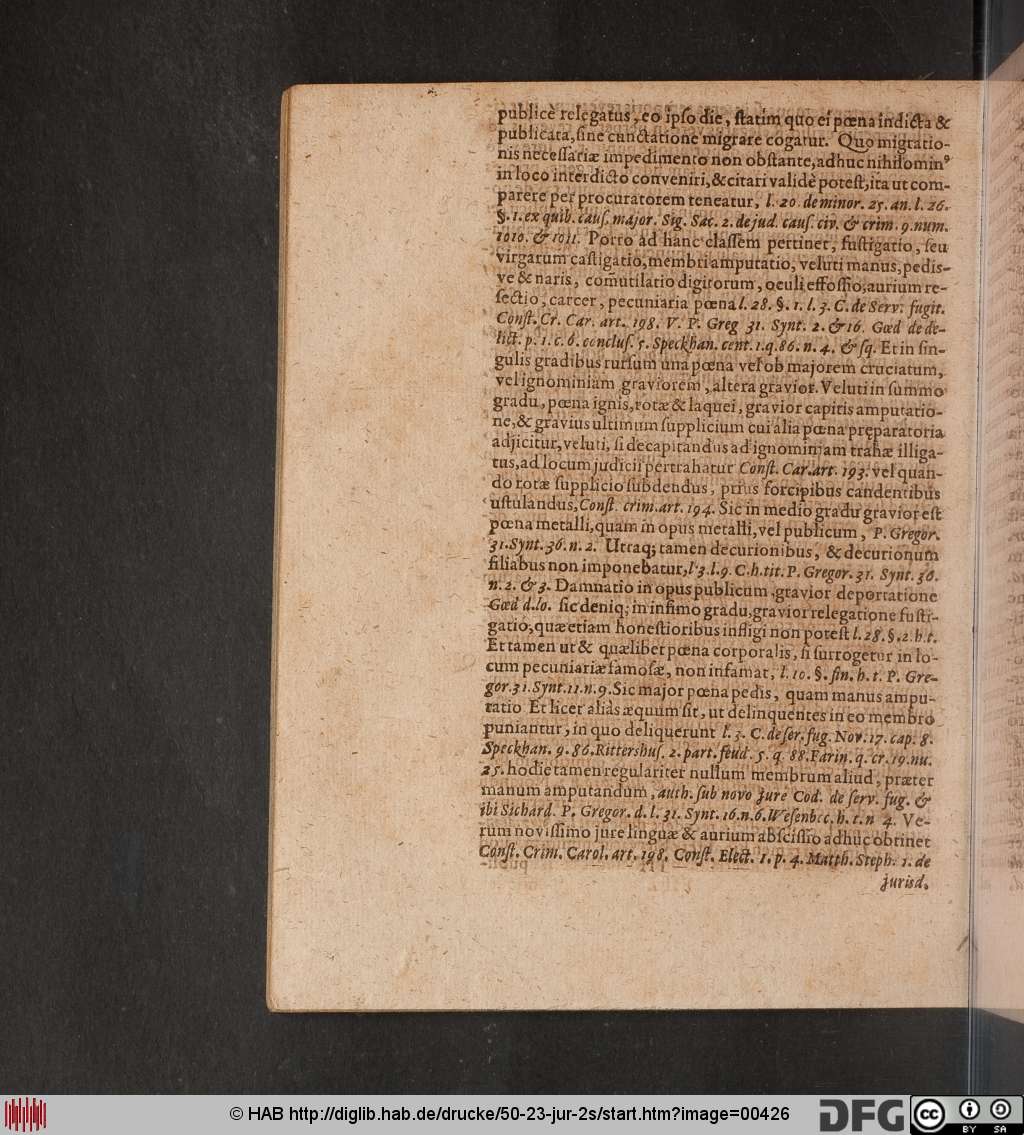 publicè relegatus, eo ipſo die, ſtatim quo ei pœna indicta &
publicata, ſine cunctatione migrare cogatur. Quo migratio-
nis neceſſariæ impedimento non obſtante, adhuc nihilominꝰ
in loco interdicto conveniri, & citari validè poteſt, ita ut com-
parere per procuratorem teneatur, l. 20. de minor. 25. an. l. 26.
§. 1. ex quib. cauſ. major. Sig. Sac. 2. de jud. cauſ. civ. & crim. 9. num.
1010. & 1011. Porro ad hanc claſſem pertinet, fuſtigatio, ſeu
virgarum caſtigatio, membri amputatio, veluti manus, pedis-
ve & naris, com̃utilatio digitorum, oculi effoſſio, aurium re-
ſectio, carcer, pecuniaria pœna l. 28. §. 1. l. 3. C. de Serv. fugit.
Conſt. Cr. Car. art. 198. V. P. Greg 31. Synt. 2. & 16. Gœd de de-
lict. p. 1. c. 6. concluſ. 5. Speckhan. cent. 1. q. 86. n. 4. & ſq. Et in ſin-
gulis gradibus rurſum una pœna vel ob majorem cruciatum,
vel ignominiam graviorem, altera gravior. Veluti in ſummo
gradu, pœna ignis, rotæ & laquei, gravior capitis amputatio-
ne, & gravius ultimum ſupplicium cui alia pœna pręparatoria
adjicitur, veluti, ſi decapitandus ad ignominiam trahæ illiga-
tus, ad locum judicii pertrahatur Conſt. Car. art. 193. vel quan-
do rotæ ſupplicio ſubdendus, prius forcipibus candentibus
uſtulandus, Conſt. crim. art. 194. Sic in medio gradu gravior eſt
pœna metalli, quam in opus metalli, vel publicum, P. Gregor.
31. Synt. 36. n. 2. Utraq; tamen decurionibus, & decurionum
filiabus non imponebatur, l 3. l. 9. C. h. tit. P. Gregor. 31. Synt. 36.
n. 2. & 3. Damnatio in opus publicum, gravior deportatione
Gœd d. lo. ſic deniq; in infimo gradu, gravior relegatione fuſti-
gatio, quæ etiam honeſtioribus infligi non poteſt l. 28. §. 2. h. t.
Et tamen ut & quælibet pœna corporalis, ſi ſurrogetur in lo-
cum pecuniariæ famoſæ, non infamat, l. 10. §. fin. h. t. P. Gre-
gor. 31. Synt. 11. n. 9. Sic major pœna pedis, quam manus ampu-
tatio Et licet aliàs æquum ſit, ut delinquentes in eo membro
puniantur, in quo deliquerunt l. 3. C. de ſer. fug. Nov. 17. cap. 8.
Speckhan. 9. 86. Rittershuſ. 2. part. feud. 5. q. 88. Farin. q. cr. 19. nu.
25. hodie tamen regulariter nullum membrum aliud, præter
manum amputandum, auth. ſub novo Jure Cod. de ſerv. fug. &
ibi Sichard. P. Gregor. d. l. 31. Synt. 16. n. 6. Weſenbec. h. t. n 4. Ve-
rum noviſſimo jure linguæ & aurium abſciſſio adhuc obtinet
Conſt. Crim. Carol. art. 198. Conſt. Elect. 1. p. 4. Matth. Steph. 1. de
jurisd.
© HAB http://diglib.hab.de/drucke/50-23-jur-2s/start.htm?image=00426
DFG
cc
BY SA